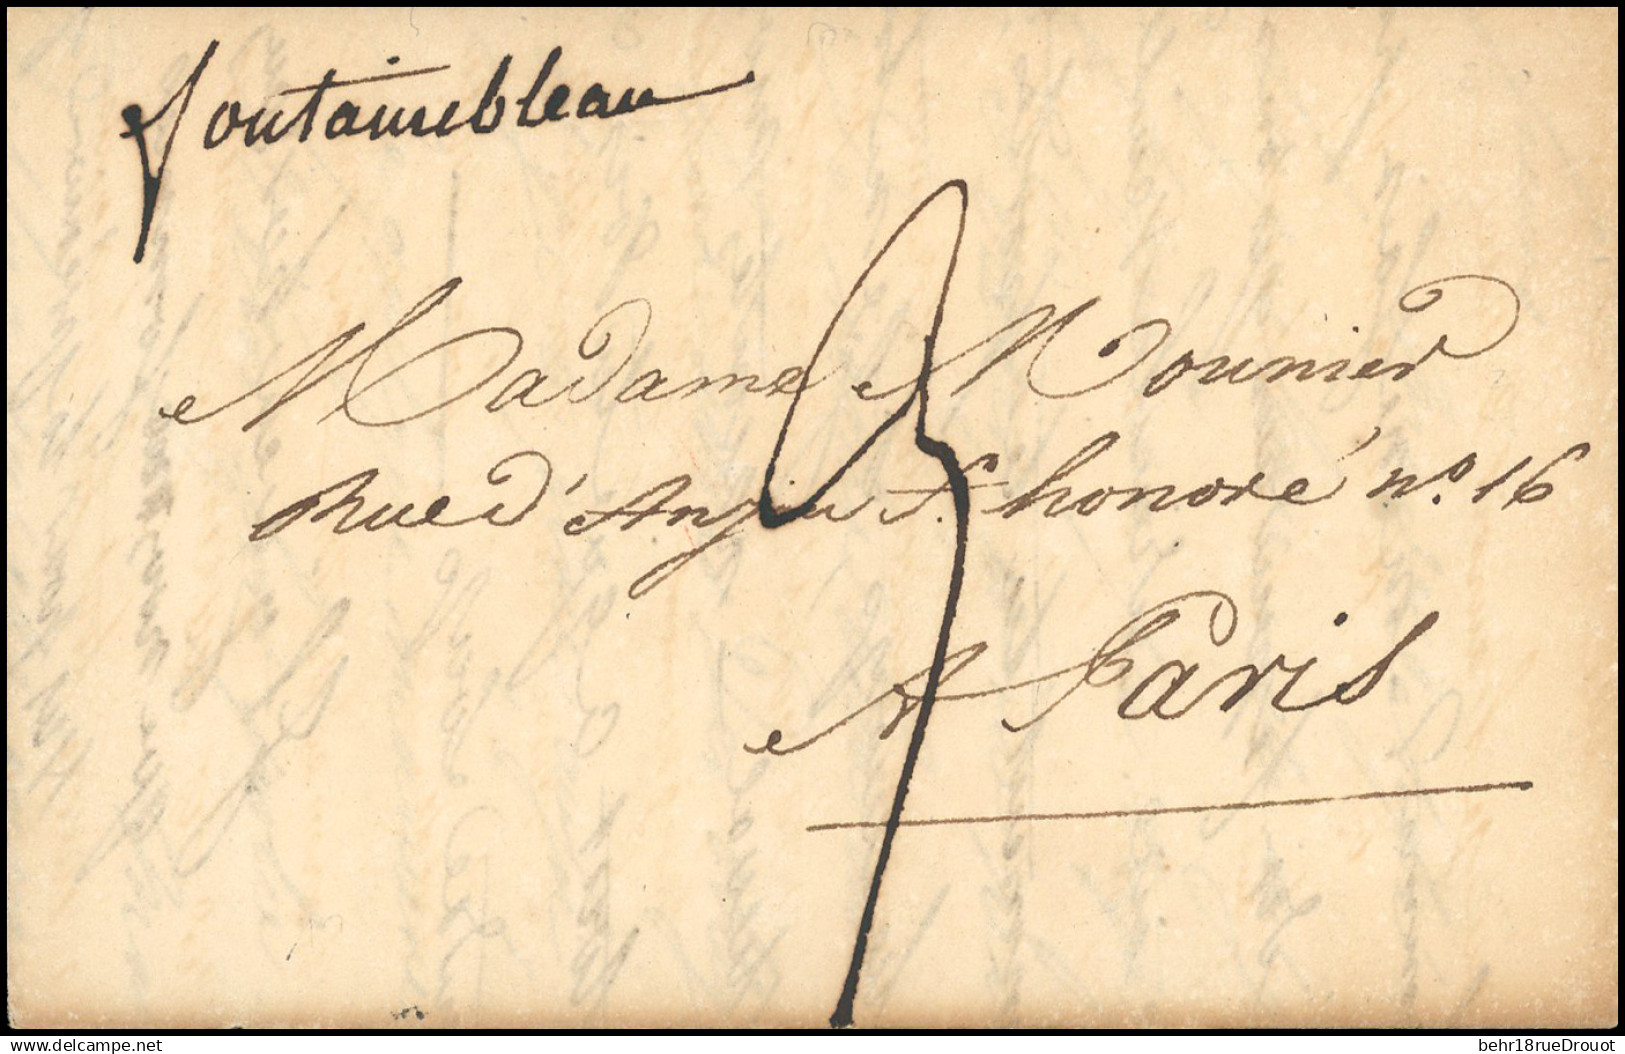 fontainebleau
Madame Mounier
Rue d'Anjou St. honoré no. 16
A Paris
www.delcampe.net
behr18rueDrouot